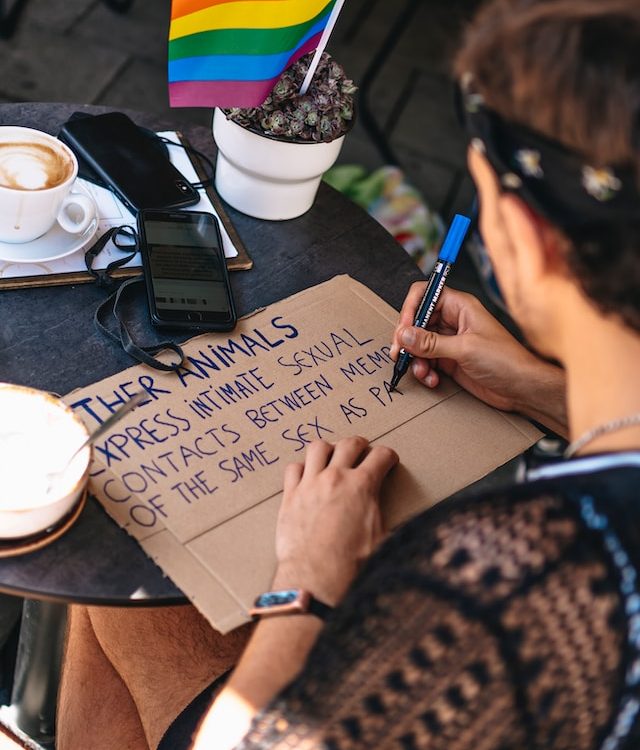 THER ANIMALS
EXPRESS INTIMATE SEXUAL
CONTACTS BETWEEN MEMB
OF THE SAME SEX AS PA